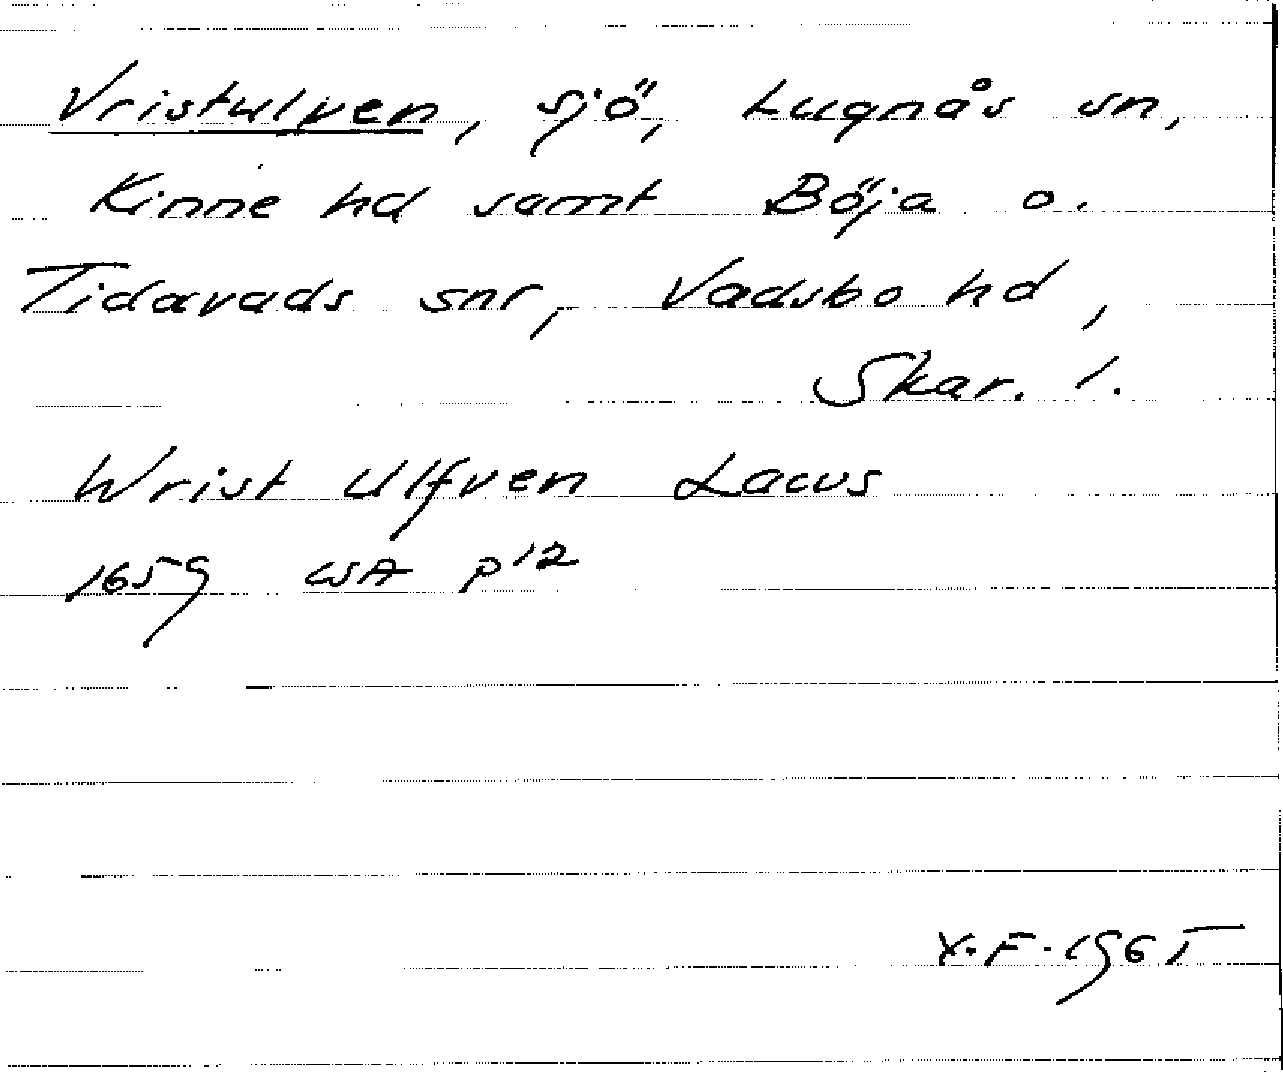 Vristulven, sjö, Lugnås sn,
Kinne hd samt Böja o.
Tidavads snr, Vadsbo hd,
Skar. l.
Wrist Ulfven Lacus
1659 LSA P12
Y.F. 1965